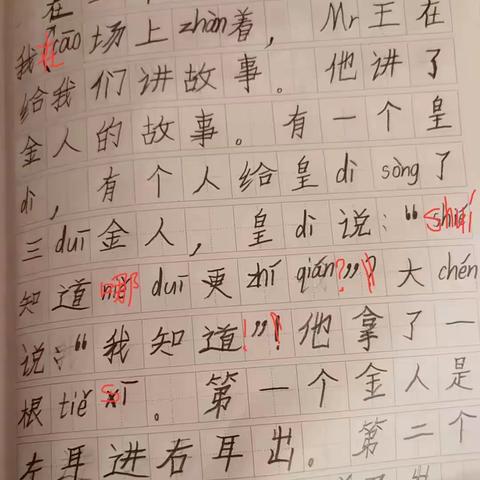 在
我在cāo场上zhàn着，Mr王在
给我们讲故事。他讲了
金人的故事。有一个皇
dì，有个人给皇dì sòng了
三duī金人，皇dì说：“shuí
知道哪duī更zhí qián？”大chén
说：“我知道！”他拿了一
根tiě sī。第一个金人是
左耳进右耳出。第二个